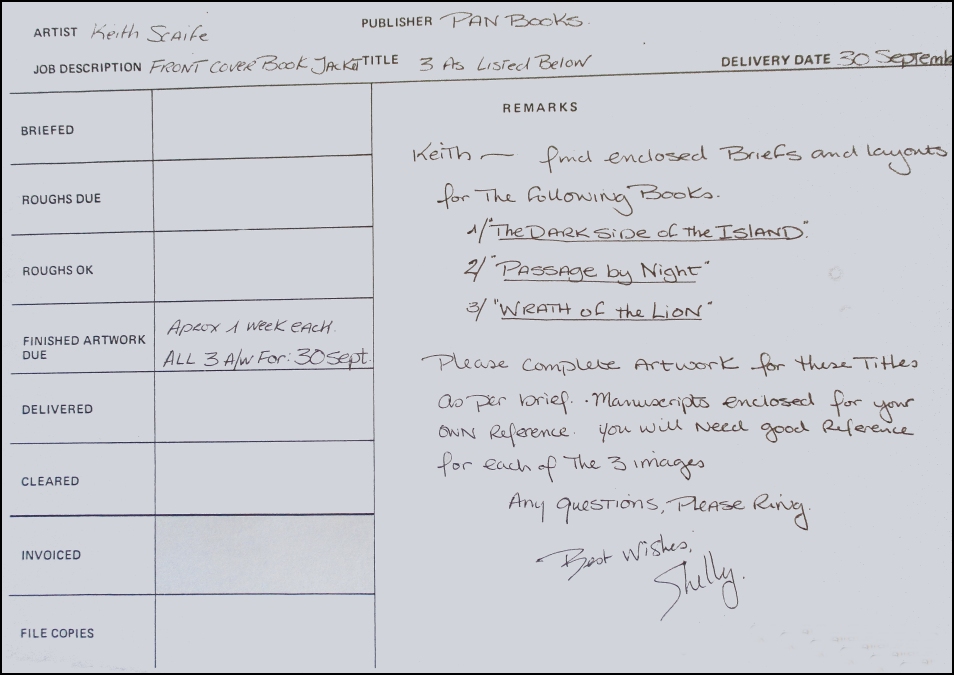 ARTIST Keith Scaife PUBLISHER PAN BOOKS.
JOB DESCRIPTION FRONT COVER BOOK JACKET TITLE 3 AS LISTED BELOW DELIVERY DATE 30 Septemb
REMARKS
BRIEFED
ROUGHS DUE
ROUGHS OK
FINISHED ARTWORK DUE
APROX 1 WEEK EACH.
ALL 3 A/W FOR: 30 Sept.
DELIVERED
CLEARED
INVOICED
FILE COPIES
Keith — find enclosed Briefs and layouts
for The following Books.
1/ "The DARK SIDE of the ISLAND".
2/ "PASSAGE by Night"
3/ "WRATH of the LION"
Please complete Artwork for these Titles
as per brief. Manuscripts enclosed for your
OWN Reference. you will Need good Reference
for each of The 3 images
Any questions, Please Ring.
Best Wishes,
Shelly.